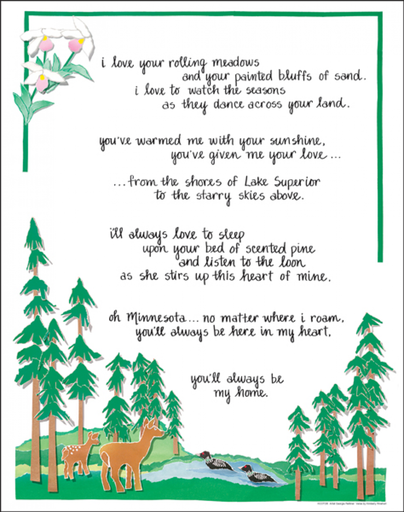 i love your rolling meadows
and your painted bluffs of sand.
i love to watch the seasons
as they dance across your land.
you've warmed me with your sunshine,
you've given me your love...
...from the shores of Lake Superior
to the starry skies above.
i'll always love to sleep
upon your bed of scented pine
and listen to the loon
as she stirs up this heart of mine.
oh Minnesota... no matter where i roam,
you'll always be here in my heart,
you'll always be
my home.